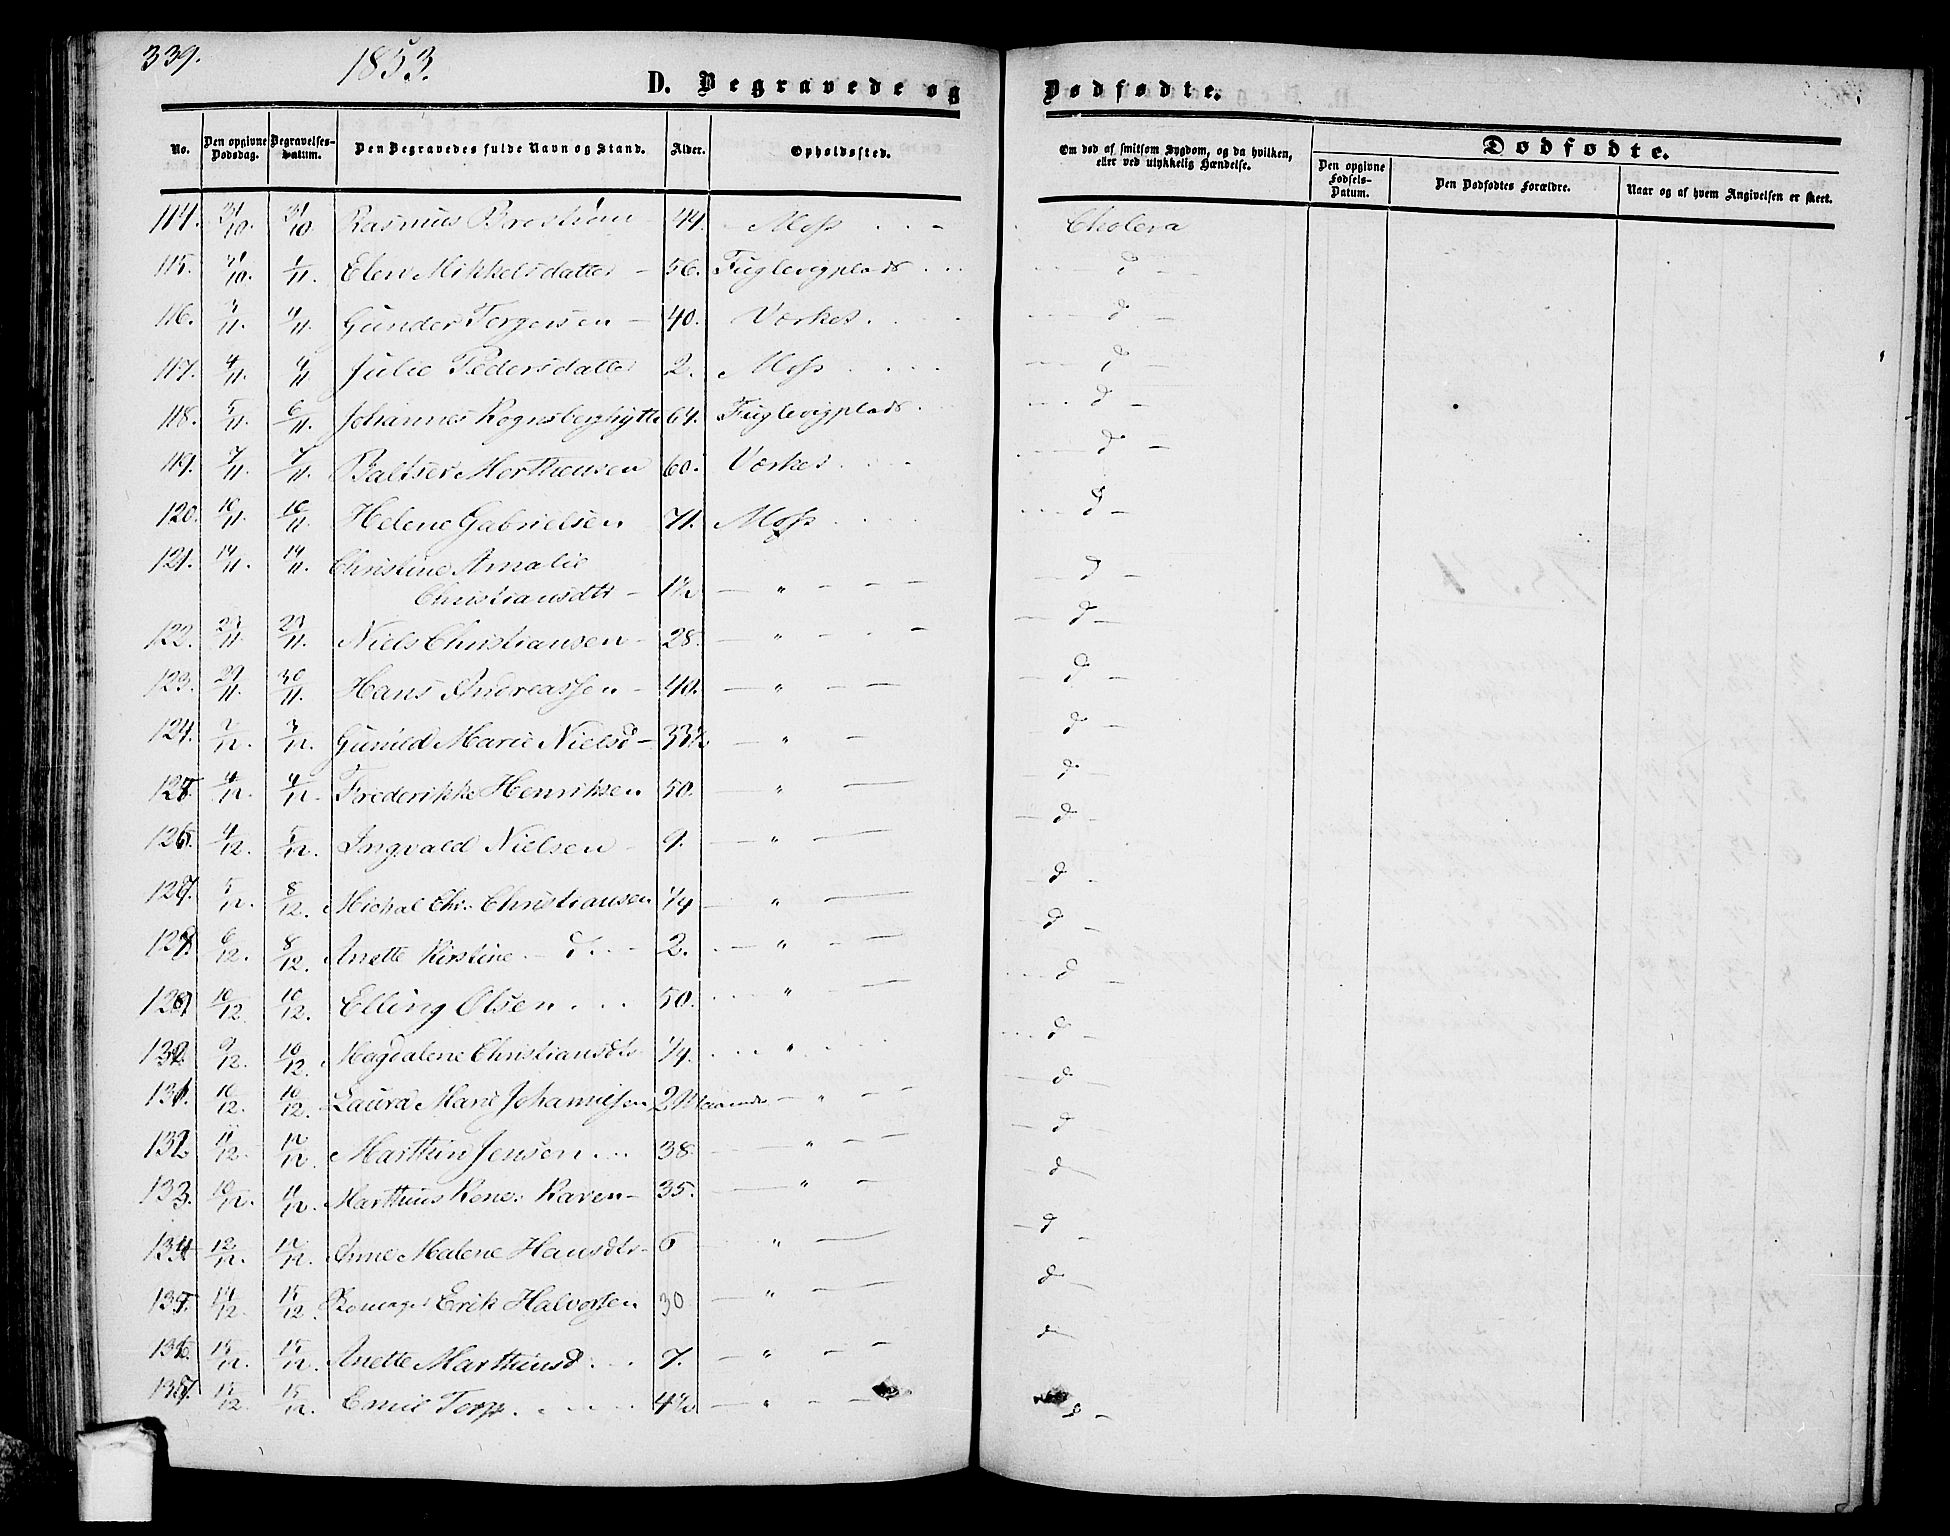 339. 1853.
D. Begravede og Dødfødte.
No. Den opgivne Dødsdag. Begravelses-Datum. Den Begravedes fulde Navn og Stand. Alder. Opholdssted. Om død af smitsom Sygdom, og da hvilken, eller ved ulykkelig Hændelse. Dødfødte. Den opgivne Fødsels-Datum. Den Dødfødtes Forældre. Naar og af hvem Angivelsen er skeet.
114. 31/10. 31/10 Rasmus 44. Moss Cholera
115. 31/10. 1/11. Elen Mikkelsdatter 56. Fuglevigplads d
116. /11. 4/11. Gunder Torgersen 40. Værket d
117. 4/11. 4/11 Julie Pedersdatter 2. Moss d
118. 5/11. 6/11. Johannes 64. Fuglevigplads d
119. 7/11. 7/11. Baltser Morthensen 60. Værket d
120. 10/11. 10/11. Helene Gabrielsen 71. Moss d
121. 14/11. 14/11. Christine Amalie
Christiansdtr 1½ " d
122. 23/11. 23/11. Niels Christiansen 28. " d
123. 29/11. 30/11. Hans Andreassen 40. " d
124. 2/12. 3/12. Gunild Marie Nielsd 33½ " d
125. 4/12. 4/12. Frederikke Henriksen 50. " d
126. 4/12. 5/12. Ingvald Nielsen 9. " d
127. 5/12. 8/12. Michal Chr. Christiansen 1/4 " d
128. 6/12. 8/12. Anette Kirstine d. 2. " d
129. 10/12. 10/12. Elling Olsen 50. " d
130. 9/12. 10/12. Magdalene Christiansdtr 1/4. " d
131. 10/12. 10/12. Laura Marie Johannesen " d
132. 11/12. 12/12. Marthin Jensen 38. " d
133. 10/12. 11/12. Marthius Raven 35. " d
134. 12/12. 12/12. Anne Malene Hansdtr 6 " d
135. 14/12. 15/12. Erik Halvorsen 30 " d
136. 15/12. 15/12. Anette Marthinsd 7. " d
137. 15/12. 15/12. Emil Torp. 4½ " d